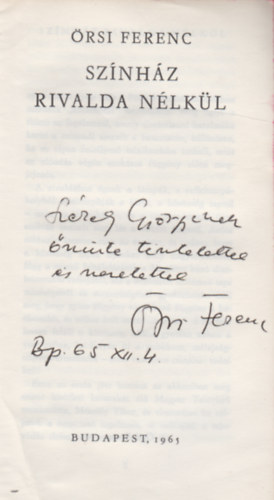 ŐRSI FERENC
SZÍNHÁZ
RIVALDA NÉLKÜL
Györgynek
őszinte tisztelettel
és szeretettel
Őrsi Ferenc
Bp. 65 XII. 4.
BUDAPEST, 1965